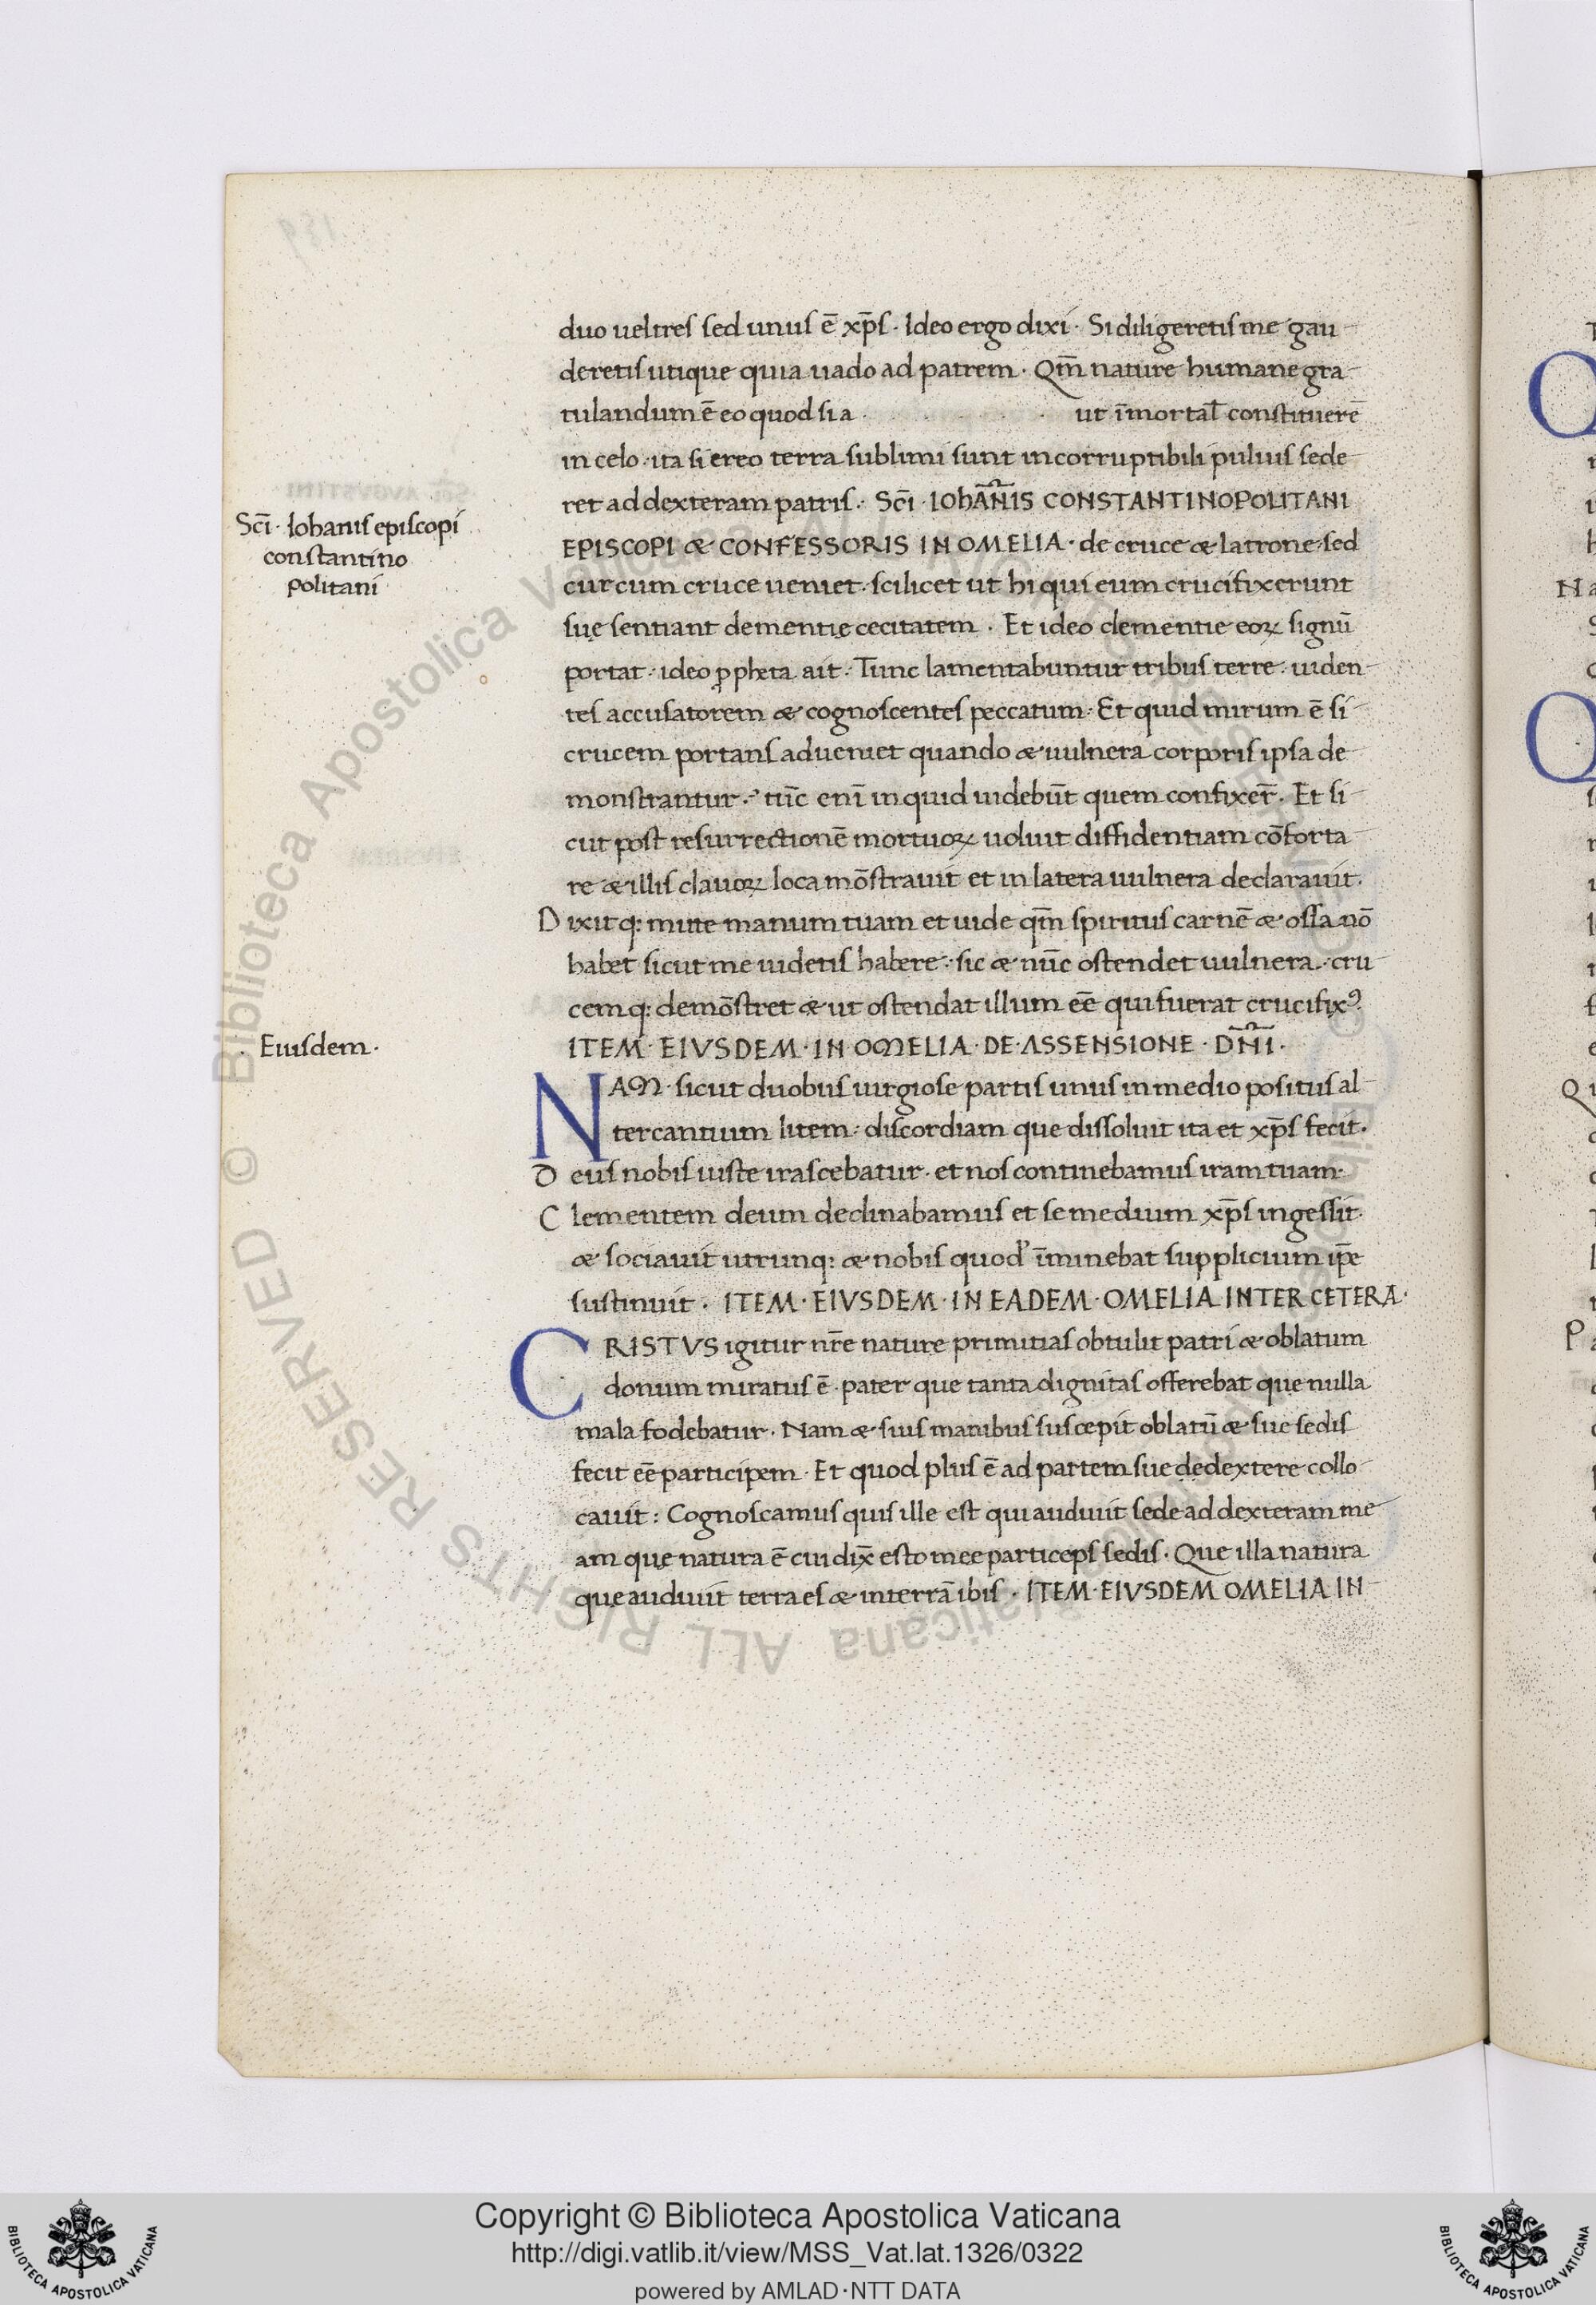 duo uel tres sed unus ē xp̄s · Ideo ergo dixi · Si diligeretis me gau
deretis utique quia uado ad patrem · Qm̄ nature humane gra
tulandum ē eo quod si a · ut īmortal̄ constituerē
in celo · ita si ereo terra sublimi sunt incorruptibili puluis sede
ret ad dexteram patris · Sc̄i · IOhAN̄IS CONSTANTINOPOLITANI
Sc̄i · Iohanis episcopi
constantino
politani
EPISCOPI & CONFESSORIS IN OMELIA · de cruce & latrone · sed
cur cum cruce ueniet · scilicet ut hi qui eum crucifixerunt
sue sentiant dementie cecitatem · Et ideo clementie eoꝝ signū
portat · ideo ꝓpheta ait · Tunc lamentabuntur tribus terre · uiden
tes accusatorem & cognoscentes peccatum · Et quid mirum ē si
crucem portans adueniet quando & uulnera corporis ipsa de
monstrantur · tūc enī inquid uidebūt quem confixer̄ · Et si
cut post resurrectionē mortuoꝝ uoluit diffidentiam cōforta
re & illis clauoꝝ loca mōstrauit et in latera uulnera declarauit ·
Dixitq: mitte manum tuam et uide qm̄ spiritus carnē & ossa nō
habet sicut me uidetis habere · sic & nūc ostendet uulnera · cru
cemq: demōstret & ut ostendat illum eē qui fuerat crucifixꝰ ·
· Eiusdem ·
ITEM · EIVSDEM · IN OMELIA · DE · ASSENSIONE · DN̄I ·
NAM · sicut duobus uirgiose partis unus in medio positus al
tercantium litem · discordiam que dissoluit ita et xp̄s fecit ·
Deus nobis iuste irascebatur · et nos continebamus iram tuam ·
Clementem deum declinabamus et se medium xp̄s ingessit ·
& sociauit utrunq: & nobis quod īminebat supplicium ip̄e
sustinuit · ITEM · EIVSDEM · IN EADEM · OMELIA INTER CETERA ·
CRISTVS igitur nr̄e nature primitias obtulit patri & oblatum
donum miratus ē · pater que tanta dignitas offerebat que nulla
mala fodebatur · Nam & suis manibus suscepit oblatū & sue sedis
fecit eē participem · Et quod plus ē ad partem sue dedextere collo
cauit : Cognoscamus quis ille est qui audiuit sede ad dexteram me
am que natura ē cui dix̄ esto mee particeps sedis · Que illa natura
que audiuit terra es & in terrā ibis · ITEM · EIVSDEM OMELIA IN
© Biblioteca Apostolica Vaticana ALL RIGHTS RESERVED
Copyright © Biblioteca Apostolica Vaticana
http://digi.vatlib.it/view/MSS_Vat.lat.1326/0322
powered by AMLAD·NTT DATA
BIBLIOTECA APOSTOLICA VATICANA
BIBLIOTECA APOSTOLICA VATICANA